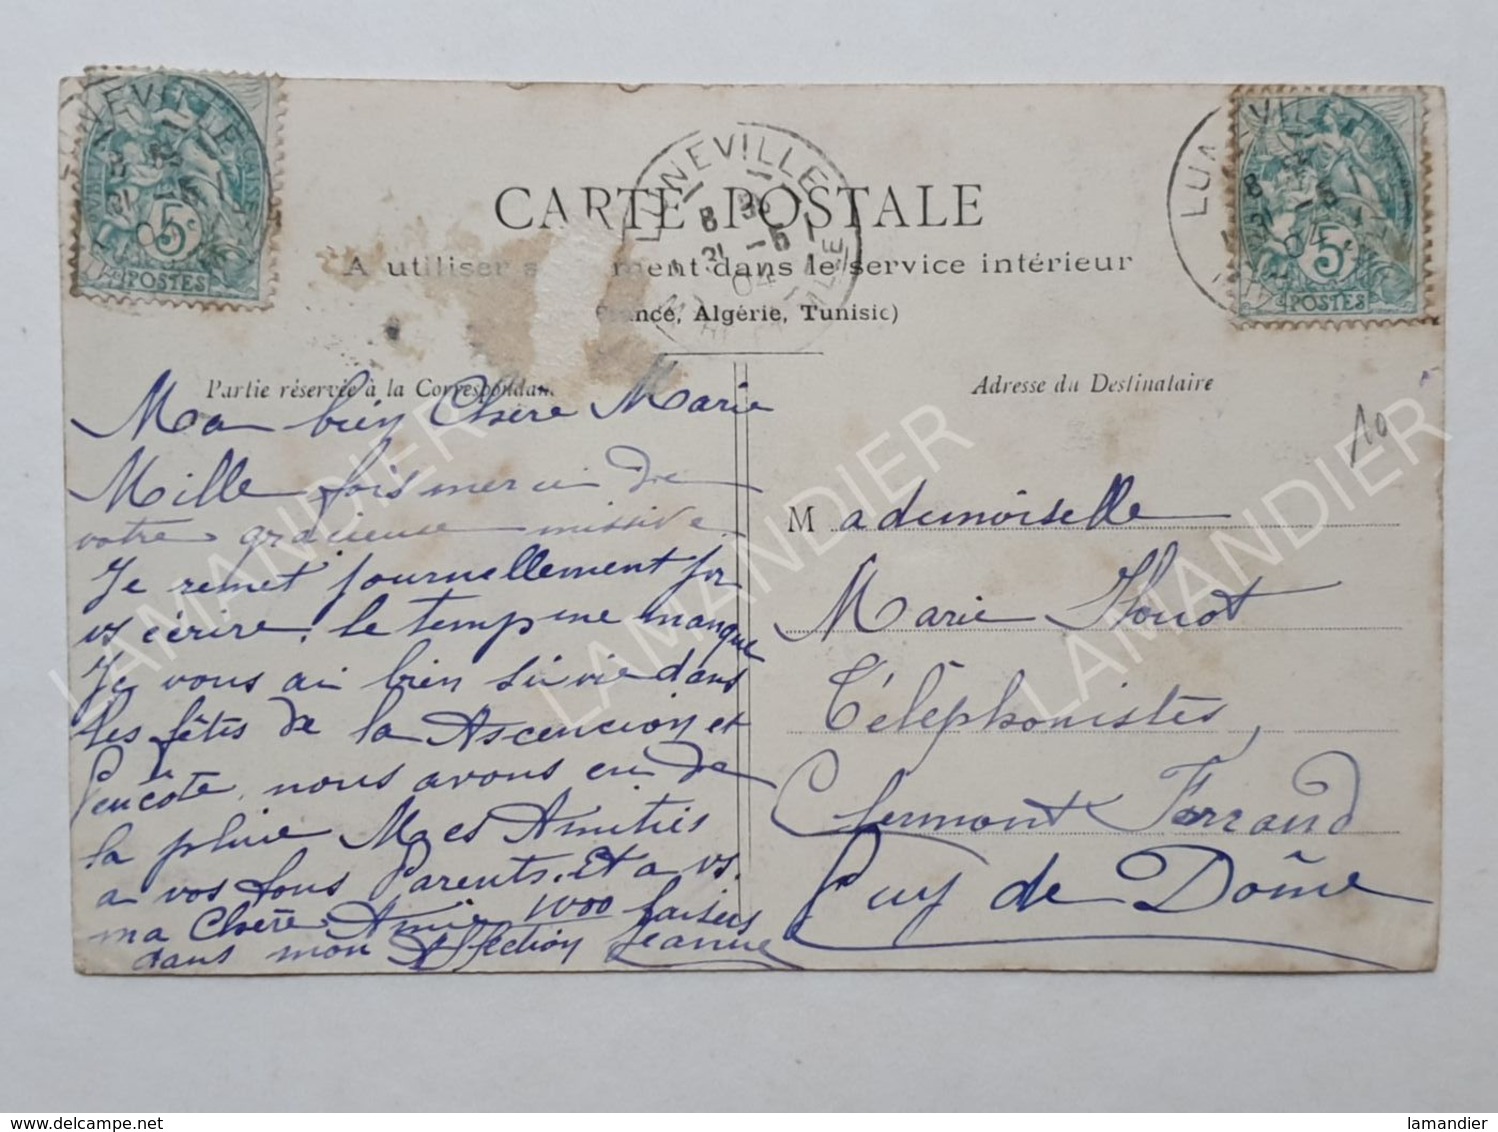 LUNEVILLE
8 E
21 -5
04
5c
POSTES
LUNEVILLE
8 E
21 -5
04
LUNEVILLE
8 E
21 -5
04
5c
POSTES
CARTE POSTALE
A utiliser dans le service intérieur
France, Algérie, Tunisie)
Partie réservée à la Correspondan
Adresse du Destinataire
10
Ma bien Chère Marie
Mille fois merci de
votre gracieuse missive
Je remet journellement pr
vs écrire, le temps me manque
Je vous ai bien suivie dans
les fêtes de la Ascencion et
Pencôte, nous avons eu de
la pluie Mes Amitiés
a vos tous Parents. Et a vs.
ma Chère Amie 1000 baisers
dans mon Affection Jeanne
Mademoiselle
Marie Houot
Téléphonistes,
Clermont Ferrand
Puy de Dôme
LAMANDIER
LAMANDIER
LAMANDIER
www.delcampe.net
lamandier